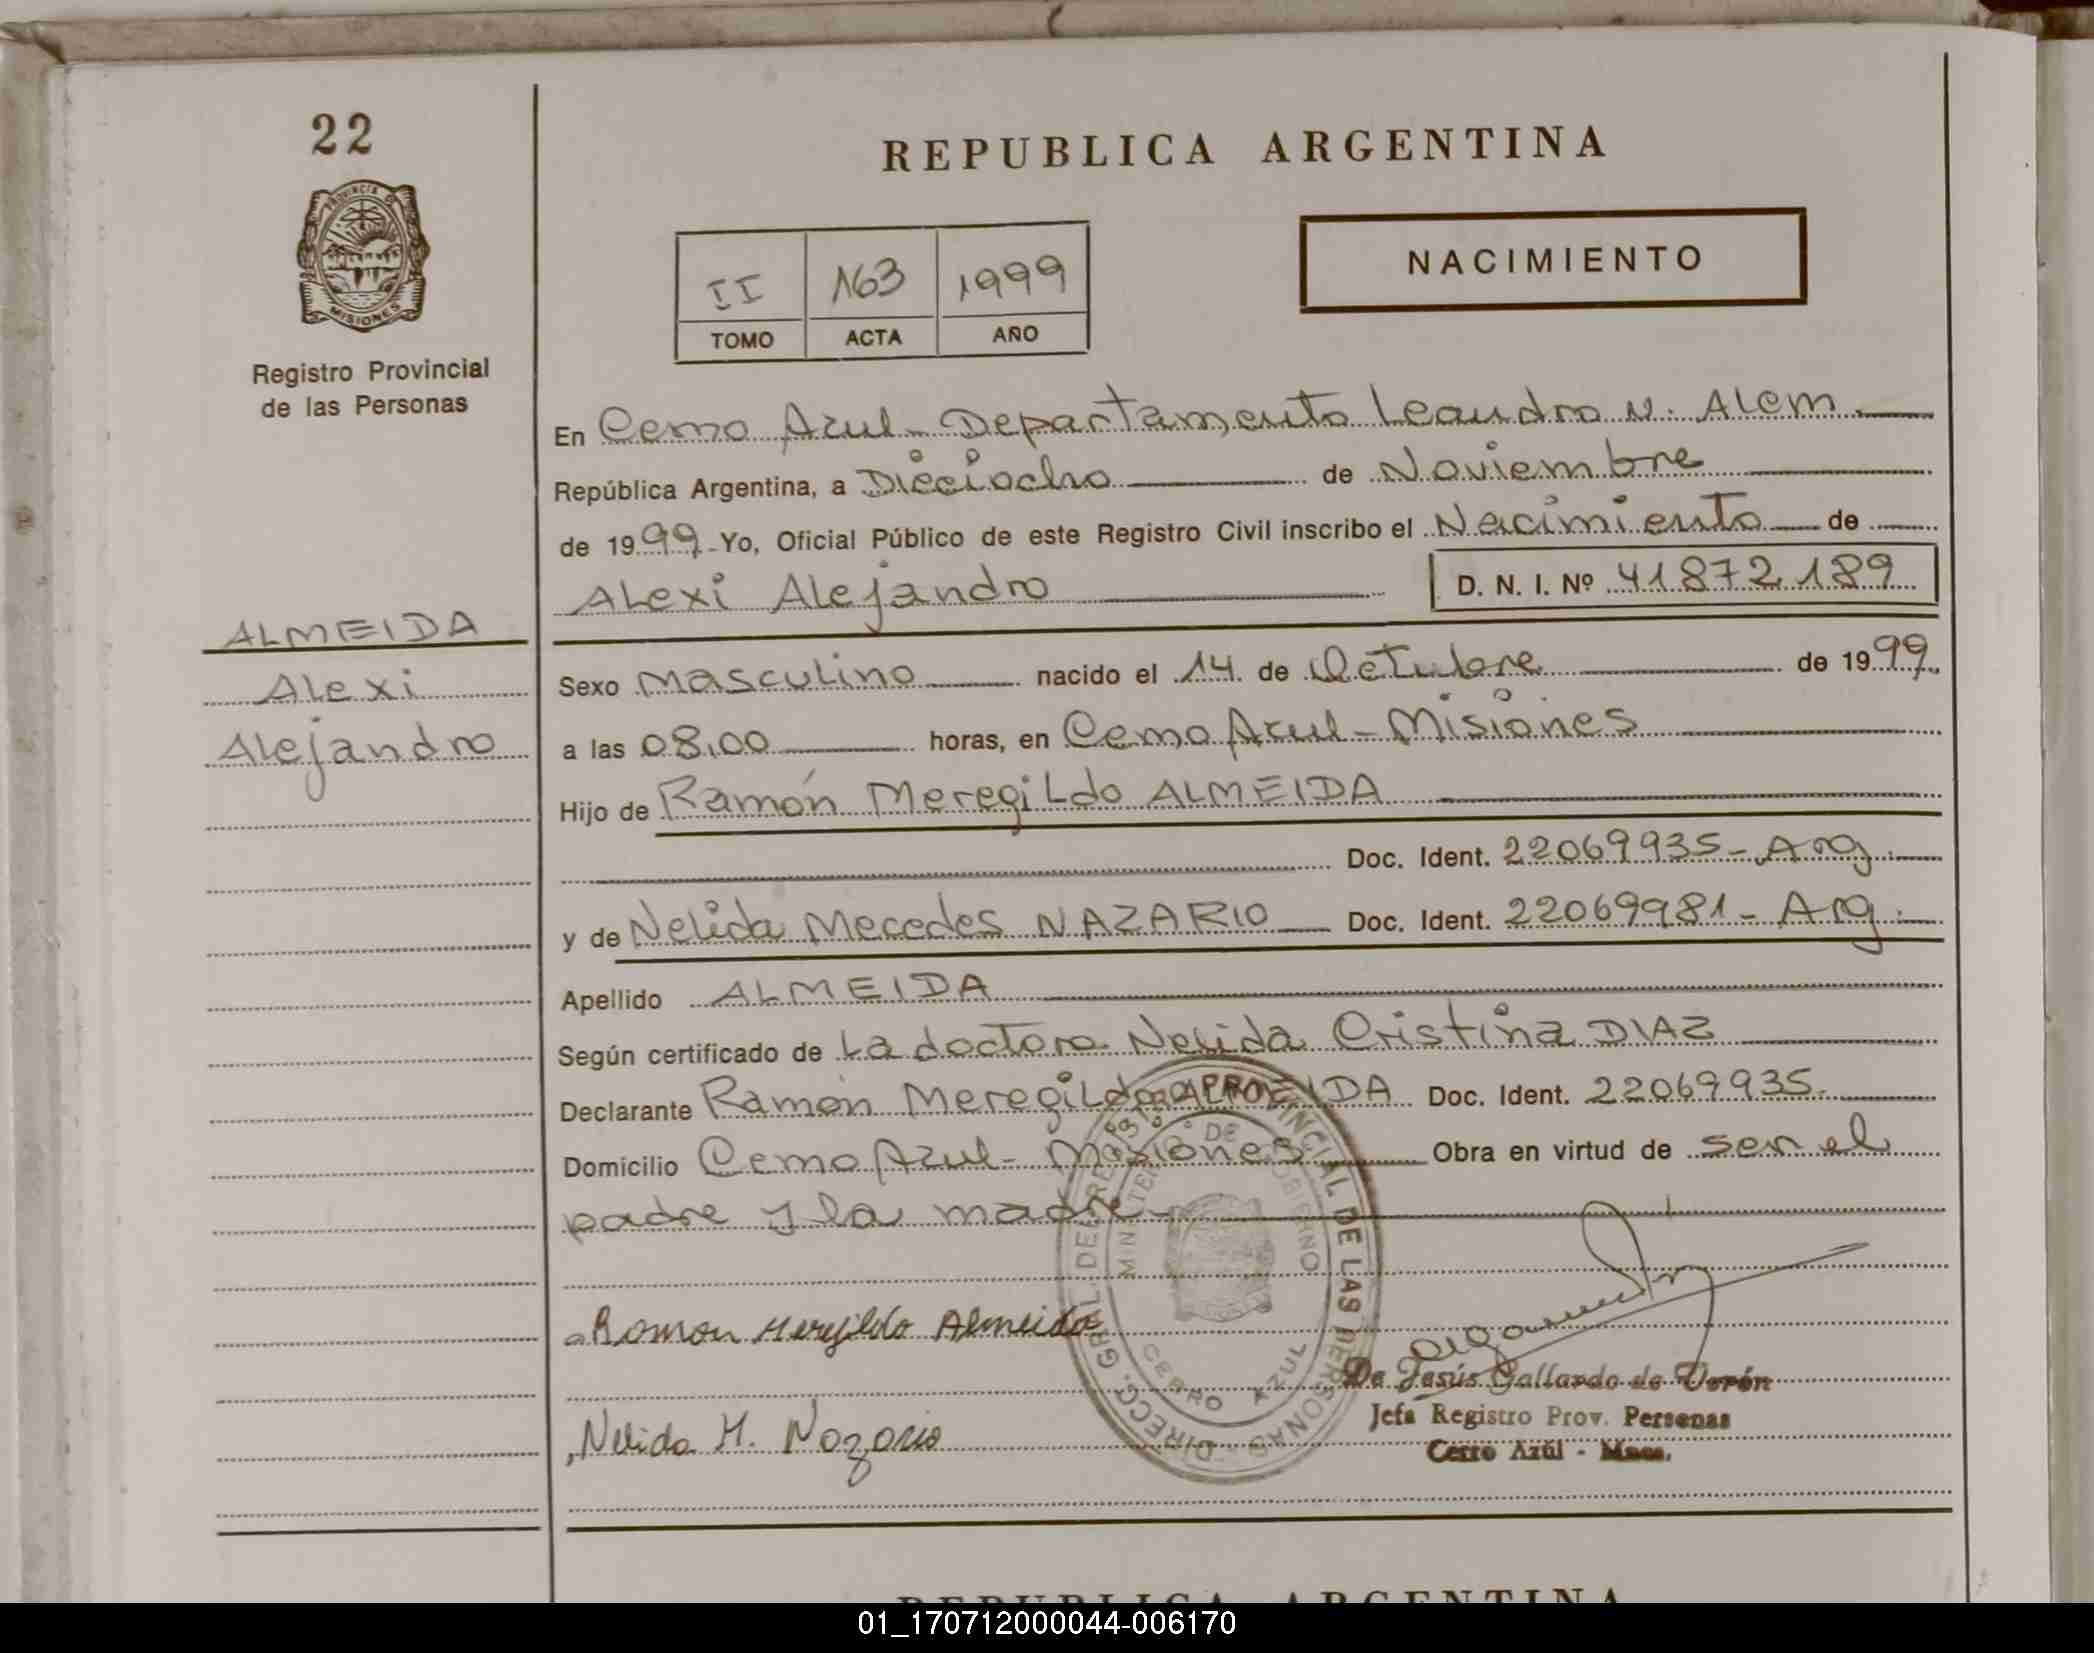 22
PROVINCIA DE
MISIONES
Registro Provincial
de las Personas
ALMEIDA
Alexi
Alejandro
REPUBLICA ARGENTINA
II 163 1999
TOMO ACTA AÑO
NACIMIENTO
En Cerro Azul - Departamento Leandro N. Alem
República Argentina, a Dieciocho de Noviembre
de 1999 Yo, Oficial Público de este Registro Civil inscribo el Nacimiento de
Alexi Alejandro D. N. I. Nº 41872189
Sexo Masculino nacido el 14 de Octubre de 1999
a las 08,00 horas, en Cerro Azul - Misiones
Hijo de Ramón Meregildo ALMEIDA
Doc. Ident. 22069935 - Arg.
y de Nelida Mecedes NAZARIO Doc. Ident. 22069981 - Arg.
Apellido ALMEIDA
Según certificado de La doctora Nelida Cristina DIAZ
Declarante Ramón Meregildo ALMEIDA Doc. Ident. 22069935.
Domicilio Cerro Azul - Misiones Obra en virtud de ser el
padre y la madre
Ramon Meregildo Almeida
Nelida M. Nazario
DIRECC. GRAL. DEL REGISTRO PROVINCIAL DE LAS PERSONAS
MINISTERIO DE GOBIERNO
CERRO AZUL
De Jesús Gallardo de Verón
Jefa Registro Prov. Personas
Cerro Azúl - Mnes.
REPUBLICA ARGENTINA
01_170712000044-006170